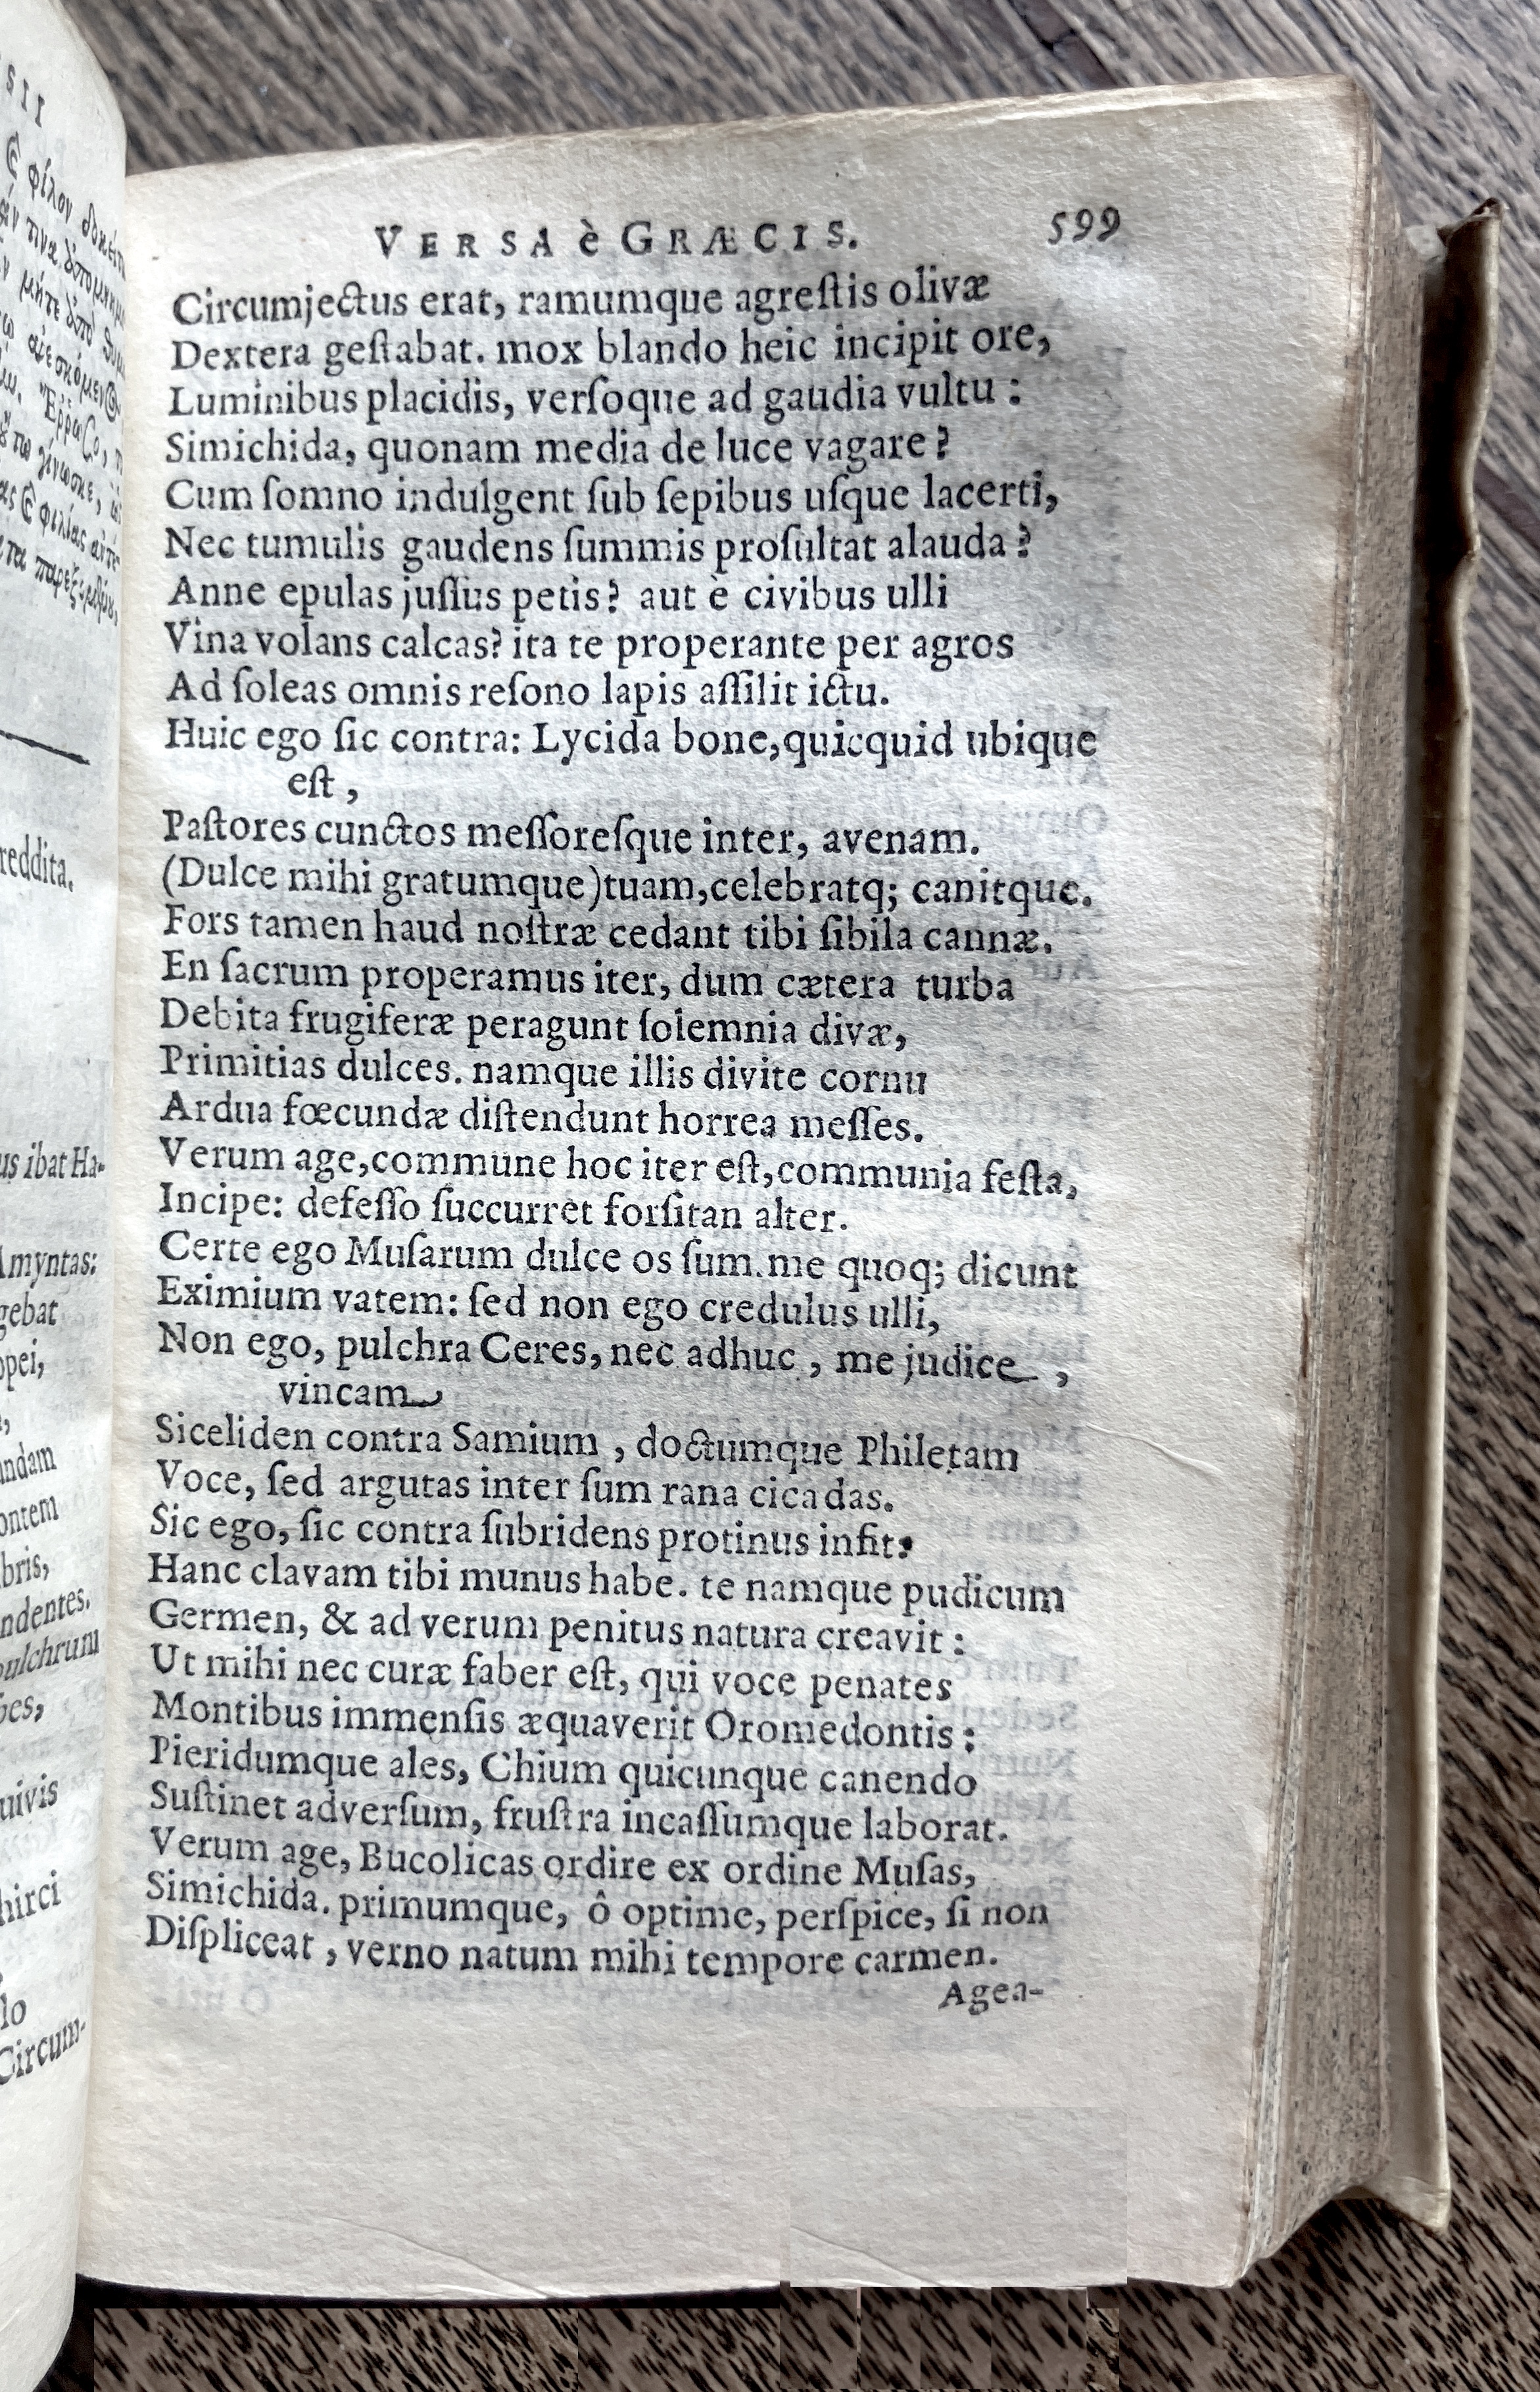 VERSA è GRÆCIS. 599
Circumjectus erat, ramumque agrestis olivæ
Dextera gestabat. mox blando heic incipit ore,
Luminibus placidis, versoque ad gaudia vultu :
Simichida, quonam media de luce vagare ?
Cum somno indulgent sub sepibus usque lacerti,
Nec tumulis gaudens summis prosultat alauda ?
Anne epulas jussus petis? aut è civibus ulli
Vina volans calcas? ita te properante per agros
Ad soleas omnis resono lapis assilit ictu.
Huic ego sic contra: Lycida bone, quicquid ubique
est ,
Pastores cunctos messoresque inter, avenam.
(Dulce mihi gratumque) tuam, celebratq; canitque.
Fors tamen haud nostræ cedant tibi sibila cannæ.
En sacrum properamus iter, dum cætera turba
Debita frugiferæ peragunt solemnia divæ,
Primitias dulces. namque illis divite cornu
Ardua fœcundæ distendunt horrea messes.
Verum age, commune hoc iter est, communia festa,
Incipe: defesso succurret forsitan alter.
Certe ego Musarum dulce os sum. me quoq; dicunt
Eximium vatem: sed non ego credulus ulli,
Non ego, pulchra Ceres, nec adhuc , me judice ,
vincam
Siceliden contra Samium , doctumque Philetam
Voce, sed argutas inter sum rana cicadas.
Sic ego, sic contra subridens protinus infit:
Hanc clavam tibi munus habe. te namque pudicum
Germen, & ad verum penitus natura creavit :
Ut mihi nec curæ faber est, qui voce penates
Montibus immensis æquaverit Oromedontis :
Pieridumque ales, Chium quicunque canendo
Sustinet adversum, frustra incassumque laborat.
Verum age, Bucolicas ordire ex ordine Musas,
Simichida. primumque, ô optime, perspice, si non
Displiceat , verno natum mihi tempore carmen.
Agea-
reddita.
us ibat Ha-
Amyntas:
gebat
opei,
ndam
ontem
bris,
ndentes.
pulchrum
uivis
hirci
Circum-